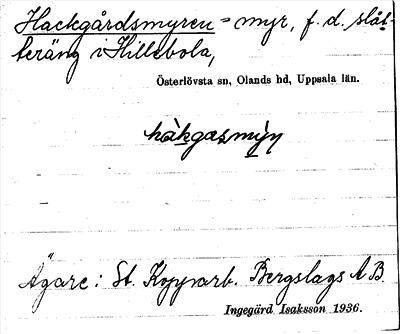 Hackgårdsmyren = myr, f. d. slåt-
teräng i Hillebola,
Österlövsta sn, Olands hd, Uppsala län.
hàkgasmy̆n
Ägare: St. Kopparb. Bergslags A B.
Ingegärd Isaksson 1936.